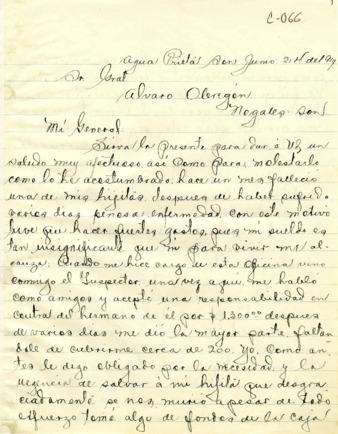 C-066
Agua Prieta Son Junio 24 del 19
Sr. Gral
Alvaro Obregón
Nogales Son
Mi General
Sirva la presente para dar á Ud un
saludo muy afectuoso así como para molestarlo
como lo he acostumbrado, hace un mes falleció
una de mis hijitas, despues de haber sufrido
varios dias penosa enfermedad, con este motivo
tuve que hacer fuertes gastos, pues mi sueldo es
tan insignificante que ni para vivir me al-
canza. Cuando me hice cargo de esta oficina vino
conmigo el Inspector, una vez aqui me habló
como amigos y acepté una responsabilidad en
contra del hermano de él por $ 1300.00 despues
de varios dias me dió la mayor parte, faltan
dole de cubrirme cerca de 200. Yo, como an-
tes le digo obligado por la necesidad y la
urgencia de salvar á mi hijita que desgra
ciadamente se nos murió apesar de todo
esfuerzo tomé algo de fondos de la caja